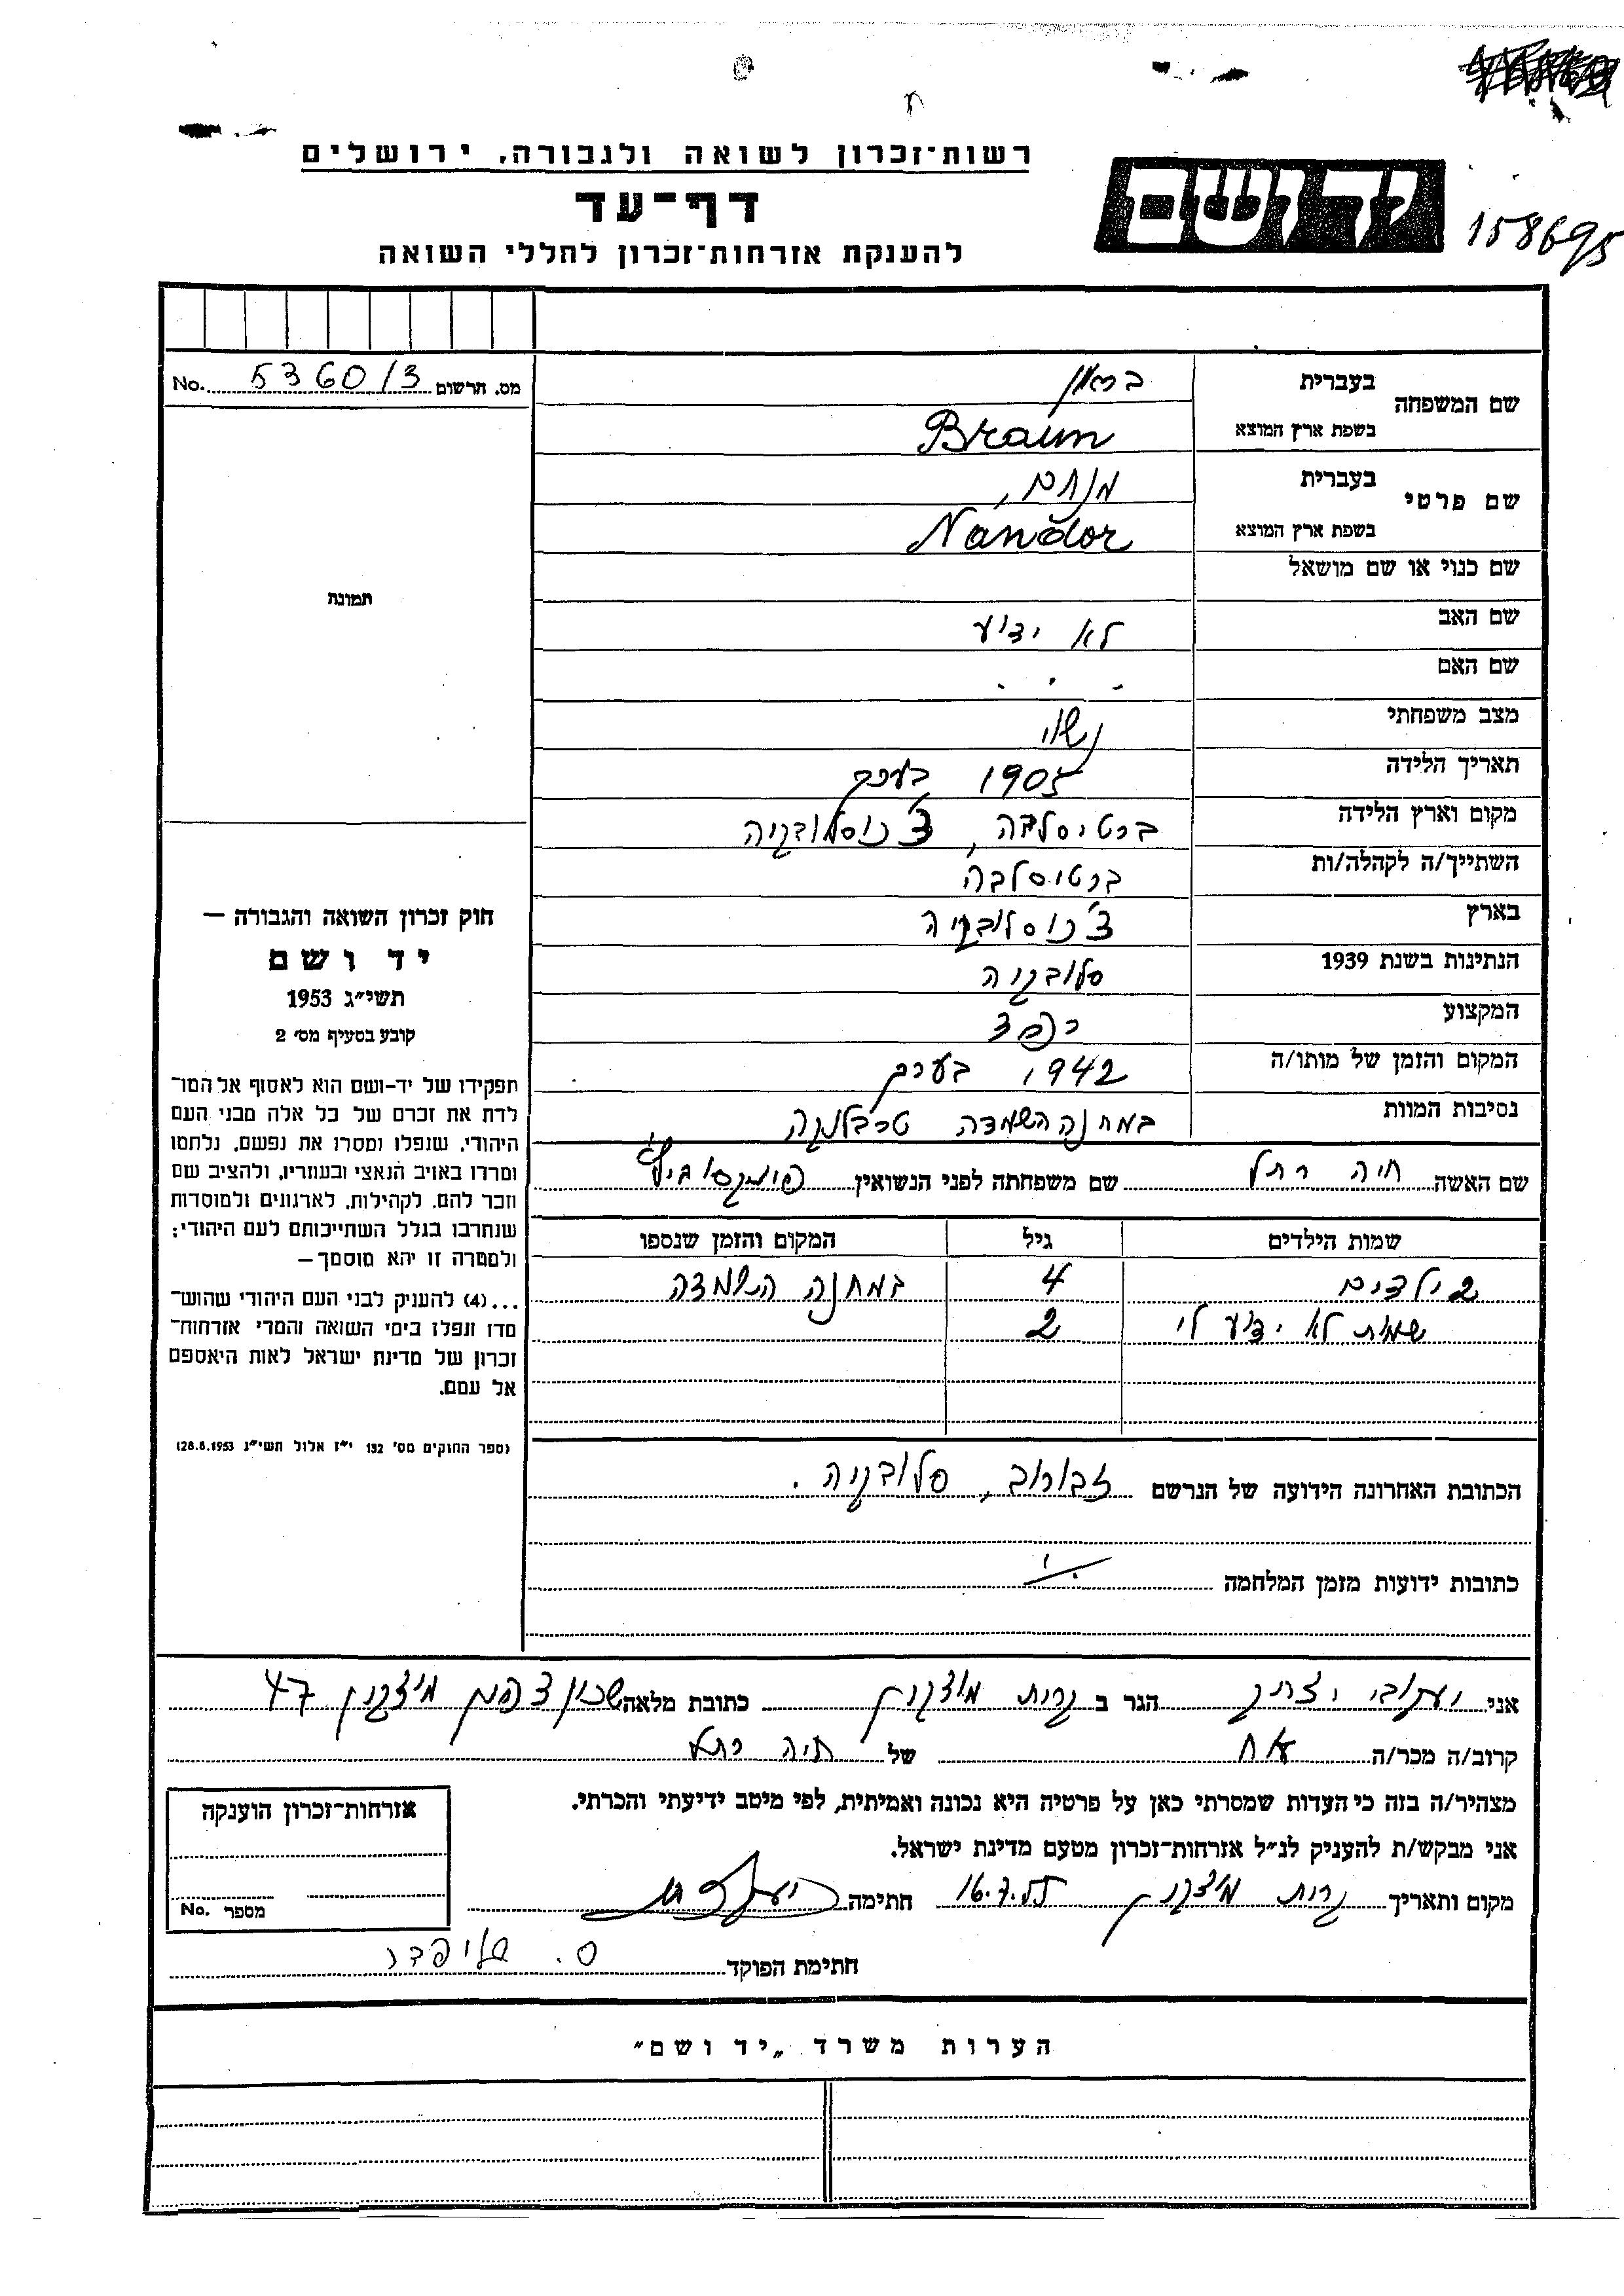 רשות־זכרון לשואה ולגבורה, ירושלים
דף־עד
להענקת אזרחות־זכרון לחללי השואה
יד ושם
158695
מס. הרשום 5360/3 No.
שם המשפחה
בעברית
בראון
בשפת ארץ המוצא
Braun
שם פרטי
בעברית
מנחם,
בשפת ארץ המוצא
Nándor
שם כנוי או שם מושאל
שם האב לא ידוע
שם האם
מצב משפחתי נשוי
תאריך הלידה 1905 בערך
מקום וארץ הלידה ברטיסלבה, צ'כוסלובקיה
השתייך/ה לקהלה/ות ברטיסלבה
בארץ צ'כוסלובקיה
הנתינות בשנת 1939 סלובקיה
המקצוע
המקום והזמן של מותו/ה 1942 בערך
נסיבות המוות במחנה השמדה טרבלינקה
שם האשה חיה רחל שם משפחתה לפני הנשואין
שמות הילדים גיל המקום והזמן שנספו
2 ילדים 4 במחנה השמדה
שמות לא ידוע לי 2
הכתובת האחרונה הידועה של הנרשם זבורוב, סלובקיה.
כתובות ידועות מזמן המלחמה
תמונה
חוק זכרון השואה והגבורה —
יד ושם
תשי״ג 1953
קובע בסעיף מס׳ 2
תפקידו של יד־ושם הוא לאסוף אל המו־
לדת את זכרם של כל אלה מבני העם
היהודי, שנפלו ומסרו את נפשם, נלחמו
ומרדו באויב הנאצי ובעוזריו, ולהציב שם
וזכר להם, לקהילות, לארגונים ולמוסדות
שנחרבו בגלל השתייכותם לעם היהודי;
ולמטרה זו יהא מוסמך —
...(4) להעניק לבני העם היהודי שהוש־
מדו ונפלו בימי השואה והמרי אזרחות־
זכרון של מדינת ישראל לאות היאספם
אל עמם.
(ספר החוקים מס׳ 132 י״ז אלול תשי״ג 28.8.1953)
אני יעקובי יצחק הגר ב קרית מוצקין כתובת מלאה שכון מיצקין 47
קרוב/ה מכר/ה אח של חיה רחל
מצהיר/ה בזה כי העדות שמסרתי כאן על פרטיה היא נכונה ואמיתית, לפי מיטב ידיעתי והכרתי.
אני מבקש/ת להעניק לנ״ל אזרחות־זכרון מטעם מדינת ישראל.
מקום ותאריך קרית מיצקין 16.7.55 חתימה
חתימת הפוקד
אזרחות־זכרון הוענקה
מספר No.
הערות משרד „יד ושם״